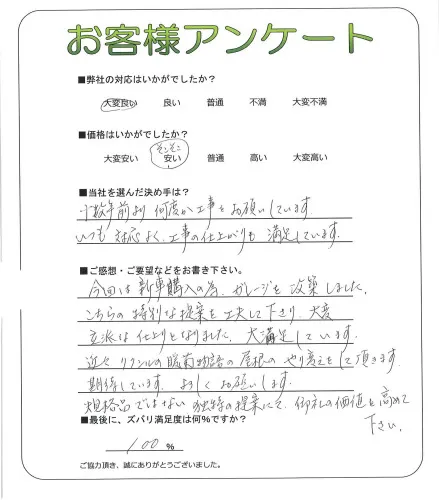 お客様アンケート
■弊社の対応はいかがでしたか?
大変良い 良い 普通 不満 大変不満
■価格はいかがでしたか?
そこそこ
大変安い 安い 普通 高い 大変高い
■当社を選んだ決め手は?
十数年前より 何度か工事を お願いしています.
いつも 対応よく、工事の仕上がりも 満足しています.
■ご感想・ご要望などをお書き下さい。
今回は 新車購入の為、ガレージを 改築しました.
こちらの 特別な提案を 工夫して下さり、大変
立派な 仕上りとなりました. 大満足しています.
近々 リクシルの 暖蘭物語の 屋根の やり変えをして頂きます.
期待しています. よろしくお願いします.
規格品ではない 独特の提案にて、御社の価値を高めて
下さい.
■最後に、ズバリ満足度は何%ですか?
100 %
ご協力頂き、誠にありがとうございました。